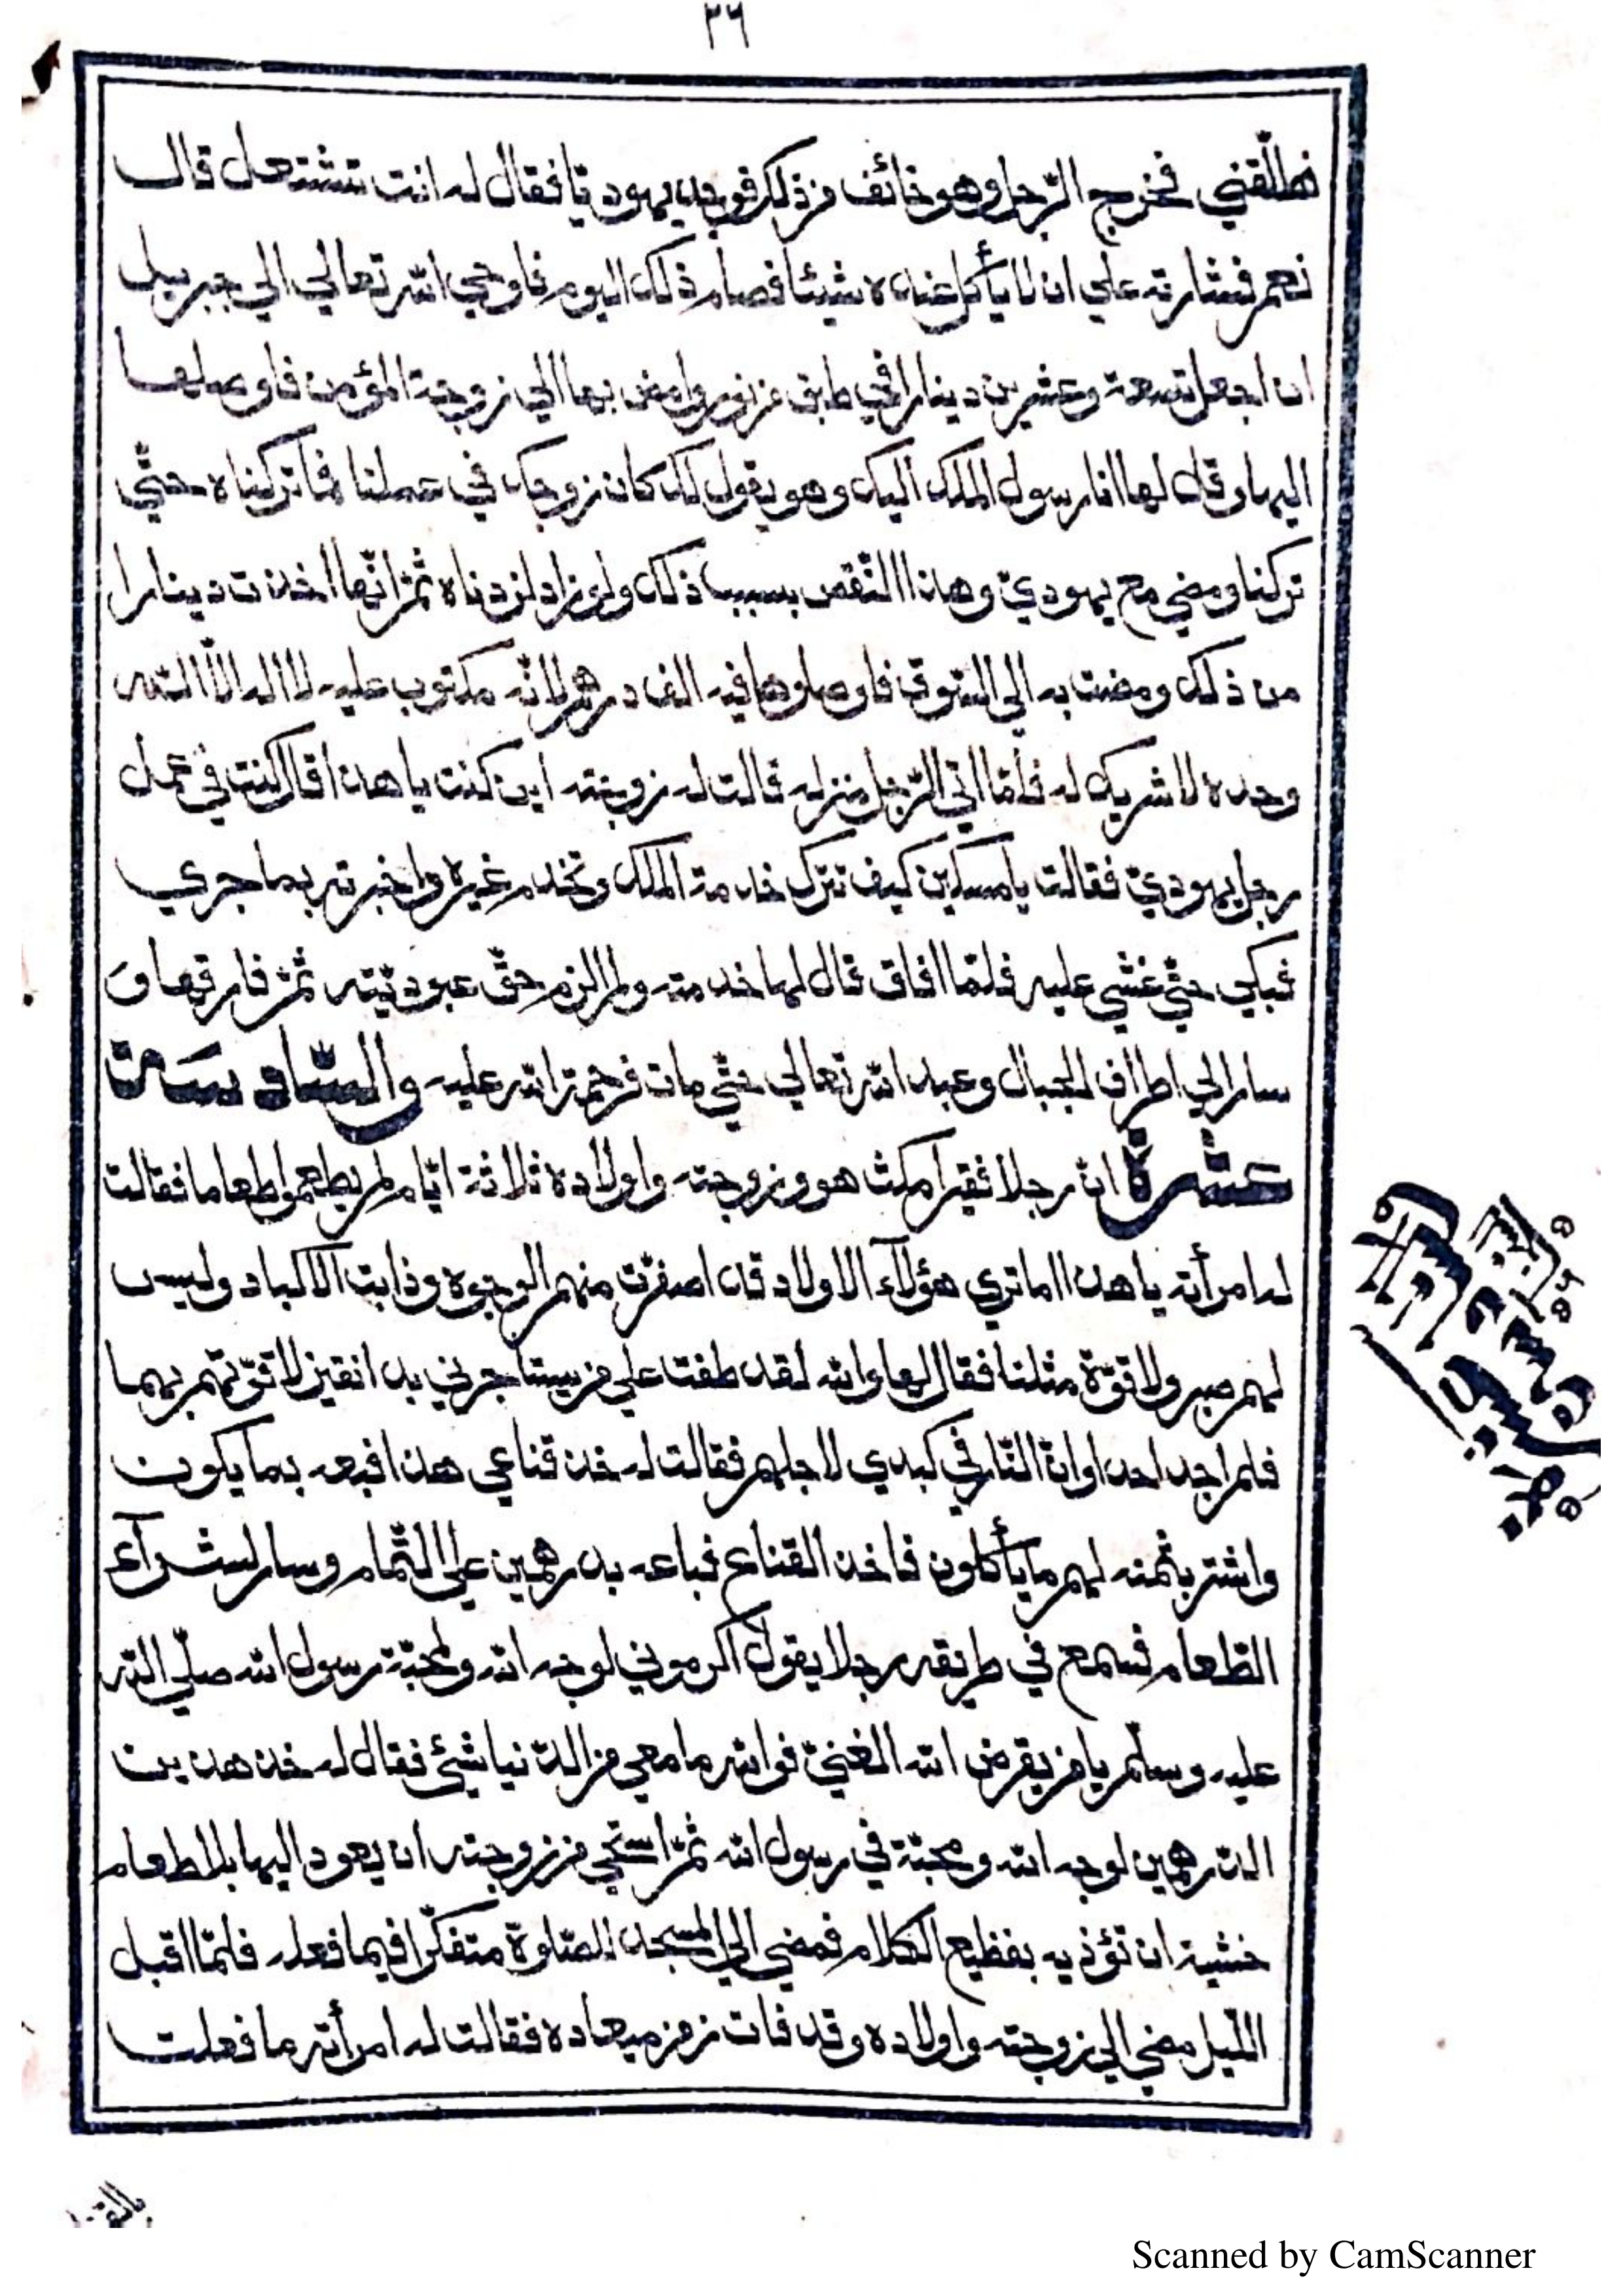 ٢٦
فطلّقني فخرج الرّجل وهو خائف من ذلك فوجد يهوديّا فقال له انت تشتغل قال
نعم فشارته علي ان لا يأكل عنده شيئا فصام ذلك اليوم فاوحي الله تعالي الي جبريل
ان اجعل تسعة وعشرين دينارا في طبق من نور وامض بها الي زوجة المؤمن فاوصلها
اليها وقال لها انا رسول الملك اليك وهو يقول لك كان زوجك في عملنا فما تركناه حتّي
تركنا ومضي مع يهوديّ وهذا النّقص بسبب ذلك ولو زاد لزدناه ثمّ انّها اخذت دينارا
من ذلك ومضت به الي السّوق فاوصلوها فيه الف درهم لانّه مكتوب عليه لا اله الّا اللّه
وحده لا شريك له فلمّا اتي الرّجل منزله قالت له زوجته اين كنت يا هذا قال كنت في عمل
رجل يهوديّ فقالت يا مسكين كيف تترك خدمة الملك وتخدم غيره واخبرته بما جري
فبكي حتّي غشي عليه فلمّا افاق قال لها خدمته ولم الزم حقّ عبوديّته ثمّ فارقها و
سار الي اطراف الجبال وعبد الله تعالي حتّي مات فرحمة الله عليه والسّادسة
عشرة انّ رجلا فقيرا مكث هو وزوجته واولاده ثلاثة ايّام لم يطعموا طعاما فقالت
له امرأته يا هذا اما تري هؤلآء الاولاد قد اصفرّت منهم الوجوه وذابت الاكباد وليس
لهم صبر ولا قوّة مثلنا فقال لها والله لقد طفت علي من يستأجرني بدانقين لاتقوّتهم بهما
فلم اجد احدا وانّ النّار في كبدي لاجلهم فقالت له خذ قناعي هذا فبعه بما يكون
واشتر بثمنه لهم ما يأكلون فاخذ القناع فباعه بدرهمين علي التّمام وسار لشرآء
الطّعام فسمع في طريقه رجلا يقول اكرموني لوجه الله ولمحبّة رسول الله صلّي اللّه
عليه وسلّم يا من يقرض الله الغنيّ فوالله ما معي من الدّنيا شيئ فقال له خذ هذين
الدّرهمين لوجه الله ومحبّة في رسول الله ثمّ استحي من زوجته ان يعود اليها بلا طعام
خشية ان تؤذيه بفظيع الكلام فمضي الي المسجد للصّلوة متفكّرا فيما فعله فلمّا اقبل
اللّيل مضي الي زوجته واولاده وقد فات زمن ميعاده فقالت له امرأته ما فعلت
Scanned by CamScanner